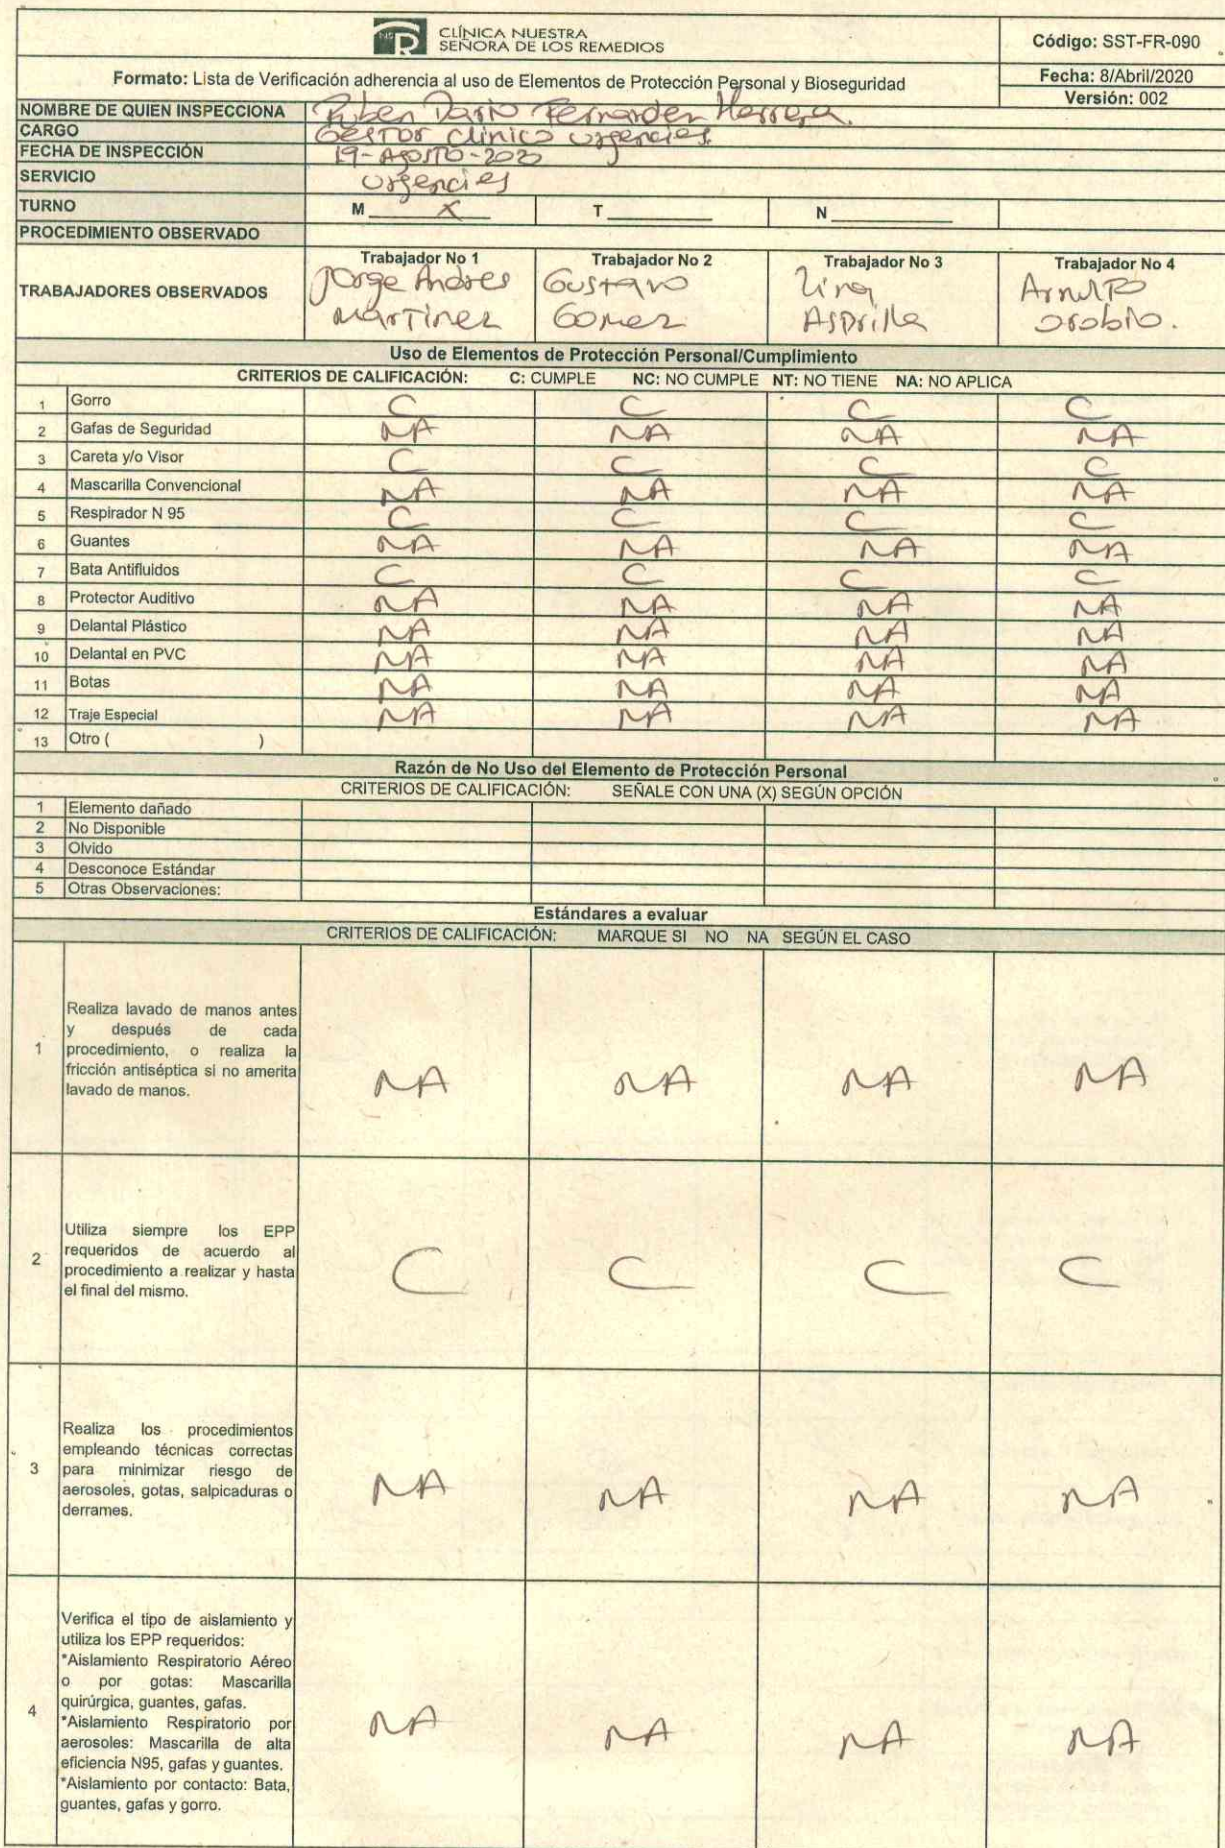 CLÍNICA NUESTRA
SEÑORA DE LOS REMEDIOS
Código: SST-FR-090
Formato: Lista de Verificación adherencia al uso de Elementos de Protección Personal y Bioseguridad
Fecha: 8/Abril/2020
Versión: 002
NOMBRE DE QUIEN INSPECCIONA Ruben Dario Fernandez Herrera.
CARGO Gestor Clinico urgencias.
FECHA DE INSPECCIÓN 19-AGOSTO-2020
SERVICIO urgencias
TURNO M X T N
PROCEDIMIENTO OBSERVADO
Trabajador No 1 Trabajador No 2 Trabajador No 3 Trabajador No 4
TRABAJADORES OBSERVADOS
Jorge Andres Gustavo Lina Arnulfo
Martinez Gomez Asprilla Orobio.
Uso de Elementos de Protección Personal/Cumplimiento
CRITERIOS DE CALIFICACIÓN: C: CUMPLE NC: NO CUMPLE NT: NO TIENE NA: NO APLICA
1 Gorro C C C C
2 Gafas de Seguridad NA NA NA NA
3 Careta y/o Visor C C C C
4 Mascarilla Convencional NA NA NA NA
5 Respirador N 95 C C C C
6 Guantes NA NA NA NA
7 Bata Antifluidos C C C C
8 Protector Auditivo NA NA NA NA
9 Delantal Plástico NA NA NA NA
10 Delantal en PVC NA NA NA NA
11 Botas NA NA NA NA
12 Traje Especial NA NA NA NA
13 Otro ( )
Razón de No Uso del Elemento de Protección Personal
CRITERIOS DE CALIFICACIÓN: SEÑALE CON UNA (X) SEGÚN OPCIÓN
1 Elemento dañado
2 No Disponible
3 Olvido
4 Desconoce Estándar
5 Otras Observaciones:
Estándares a evaluar
CRITERIOS DE CALIFICACIÓN: MARQUE SI NO NA SEGÚN EL CASO
Realiza lavado de manos antes
y después de cada
1 procedimiento, o realiza la
fricción antiséptica si no amerita
lavado de manos.
NA NA NA NA
Utiliza siempre los EPP
requeridos de acuerdo al
2 procedimiento a realizar y hasta
el final del mismo.
C C C C
Realiza los procedimientos
empleando técnicas correctas
3 para minimizar riesgo de
aerosoles, gotas, salpicaduras o
derrames.
NA NA NA NA
Verifica el tipo de aislamiento y
utiliza los EPP requeridos:
*Aislamiento Respiratorio Aéreo
o por gotas: Mascarilla
quirúrgica, guantes, gafas.
4 *Aislamiento Respiratorio por
aerosoles: Mascarilla de alta
eficiencia N95, gafas y guantes.
*Aislamiento por contacto: Bata,
guantes, gafas y gorro.
NA NA NA NA